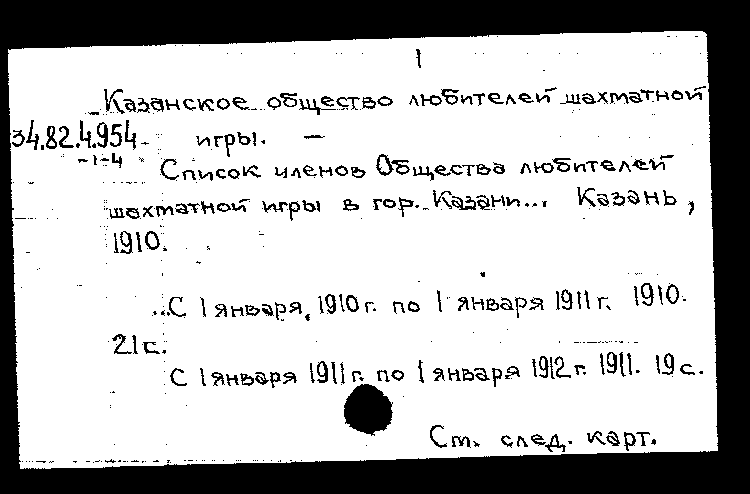 1
Казанское общество любителей шахматной
34.82.4.954 игры. —
-1-4
Список членов Общества любителей
шахматной игры в гор. Казани... Казань,
1910.
...С 1 января 1910 г. по 1 января 1911 г. 1910.
21 с.
С 1 января 1911 г. по 1 января 1912 г. 1911. 19 с.
См. след. карт.